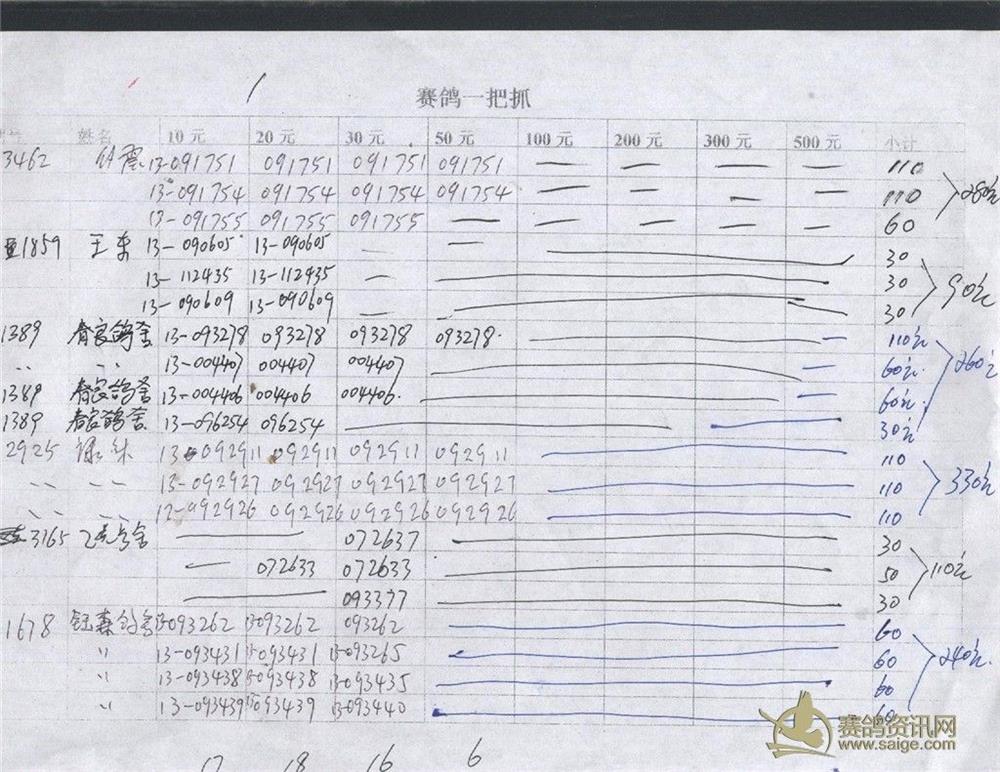 1
赛鸽一把抓
姓名 10 元 20 元 30 元 50 元 100 元 200 元 300 元 500 元 小计
3462 13-091751 091751 091751 091751 — — — — 110
13-091754 091754 091754 091754 — — — — 110 280元
13-091755 091755 091755 — — — — — 60
1859 王东 13-090605 13-090605 — — 30
13-112435 13-112435 — 30 90元
13-090609 13-090609 30
1389 春良鸽舍 13-093278 093278 093278 093278 110元
〃 〃 13-004407 004407 004407 60元 260元
1389 春良鸽舍 13-004406 004406 004406 60元
1389 春良鸽舍 13-096254 096254 30元
2925 13-092911 092911 092911 092911 110
〃 〃 13-092927 092927 092927 092927 110 330元
〃 〃 13-092926 092926 092926 092926 110
3165 072637 30
— 072633 072633 50 110元
093377 30
1678 钰森鸽舍 13-093262 13-093262 093262 60
〃 13-093431 13-093431 13-093265 60 240元
〃 13-093438 13-093438 13-093435 60
〃 13-093439 13-093439 13-093440 60
17 18 16 6
赛鸽资讯网
www.saige.com